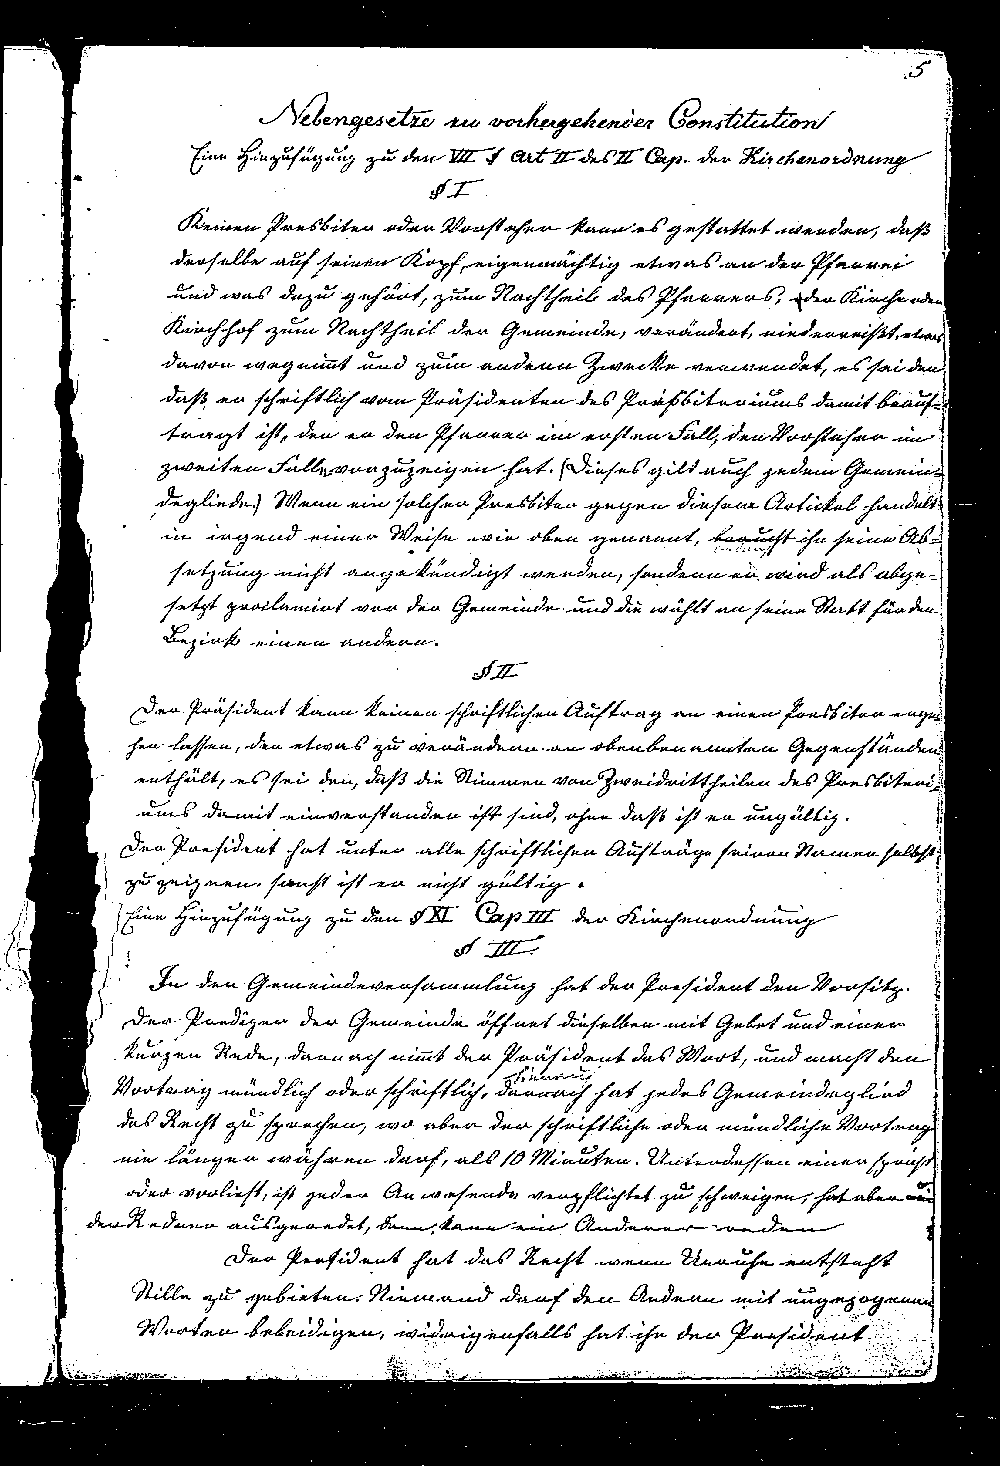 5
Nebengesetze zu vorhergehender Constitution
Eine Hinzufügung zu den VIII § Art II des II Cap. der Kirchenordnung
§ I
Keinen Presbiter oder Vorsteher kann es gestattet werden, daß
derselbe auf seinen Kopf, eigenmächtig etwas an der Pfarrei
und was dazu gehört, zum Nachtheil des Pfarrers, oder Kirche oder
Kirchhof zum Nachtheil der Gemeinde, verändert, niederreißt, etwas
davon wegnimt und zum andern Zwecke verwendet, es sei den
daß er schriftlich vom Präsidenten des Presbiteriums damit beauf=
tragt ist, den er den Pfarrer im ersten Fall, den Vorsteher im
zweiten Falle, vorzuzeigen hat. (Dieses gilt auch jedem Gemein=
degliede) Wenn ein solcher Presbiter gegen diesem Artickel handelt
in irgend einer Weise wie oben genannt, braucht ihn seine Ab=
setzung nicht angekündigt werden, sondern er wird als abge=
setzt proclamirt vor der Gemeinde und die wählt an seine Statt für den
Bezirk einen andern.
§ II
Der Präsident kann keinen schriftlichen Auftrag an einen Presbiter erge
hen lassen, den etwas zu verändern an obenbenannten Gegenständen
enthält, es sei den, daß die Stimmen von Zweidrittheilen des Presbiteri=
ums damit einverstanden ist sind, ohne daß ist er ungültig.
Der President hat unter alle schriftlichen Aufträge seinen Namen selbst
zu zeignen. sonst ist er nicht gültig.
Eine Hinzufügung zu den § XI Cap III der Kirchenordnung
§ III.
In der Gemeindeversammlung hat der President den Vorsitz.
Der Prediger der Gemeinde öffnet dieselben mit Gebet und einer
kurzen Rede, darnach nimt der Präsident das Wort, und macht den
Vortrag mündlich oder schriftlich, darnach hat jedes Gemeindeglied
das Recht zu sprechen, wo aber der schriftliche oder mündliche Vortrag
nie länger währen darf, als 10 Minuten. Unterdessen einer spricht
oder vorließt, ist jeder Anwesende verpflichtet zu schweigen, hat aber
der Redner ausgeredet, dann kann ein Anderer reden
Der President hat das Recht wenn Unruhe entsteht
Stille zu gebieten. Niemand darf den Andern mit ungezogenen
Worten beleidigen, widrigenfalls hat ihn der President